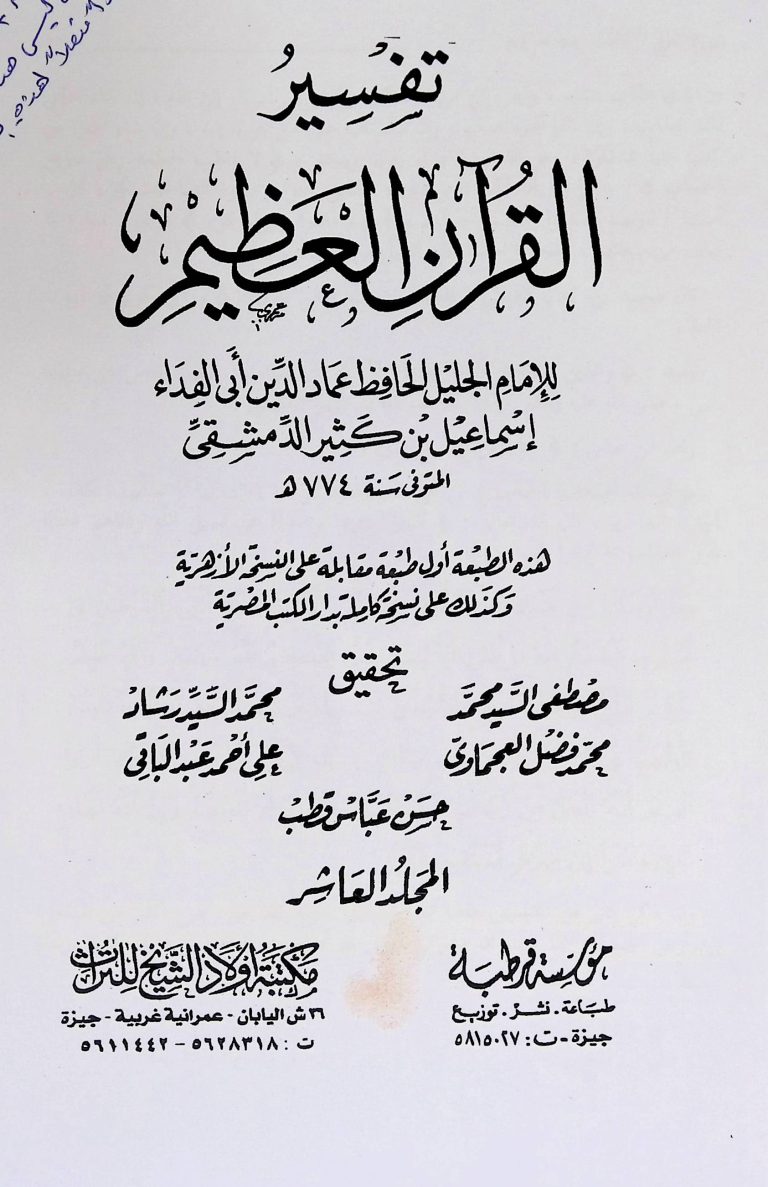 تفسير
القرآن العظيم
للإمام الجليل الحافظ عماد الدين أبى الفداء
إسماعيل بن كثير الدمشقى
المتوفى سنة ٧٧٤ هـ
هذه الطبعة أول طبعة مقابلة على النسخة الأزهرية
وكذلك على نسخة كاملة بدار الكتب المصرية
تحقيق
مصطفى السيد محمد
محمد السيد رشاد
محمد فضل العجماوى
على أحمد عبد الباقى
حسن عباس قطب
المجلد العاشر
مؤسسة قرطبة
طباعة . نشر . توزيع
جيزة - ت : ٥٨١٥٠٢٧
مكتبة أولاد الشيخ للتراث
٣٦ ش اليابان - عمرانية غربية - جيزة
ت : ٥٦٢٨٣١٨ - ٥٦١١٤٤٢